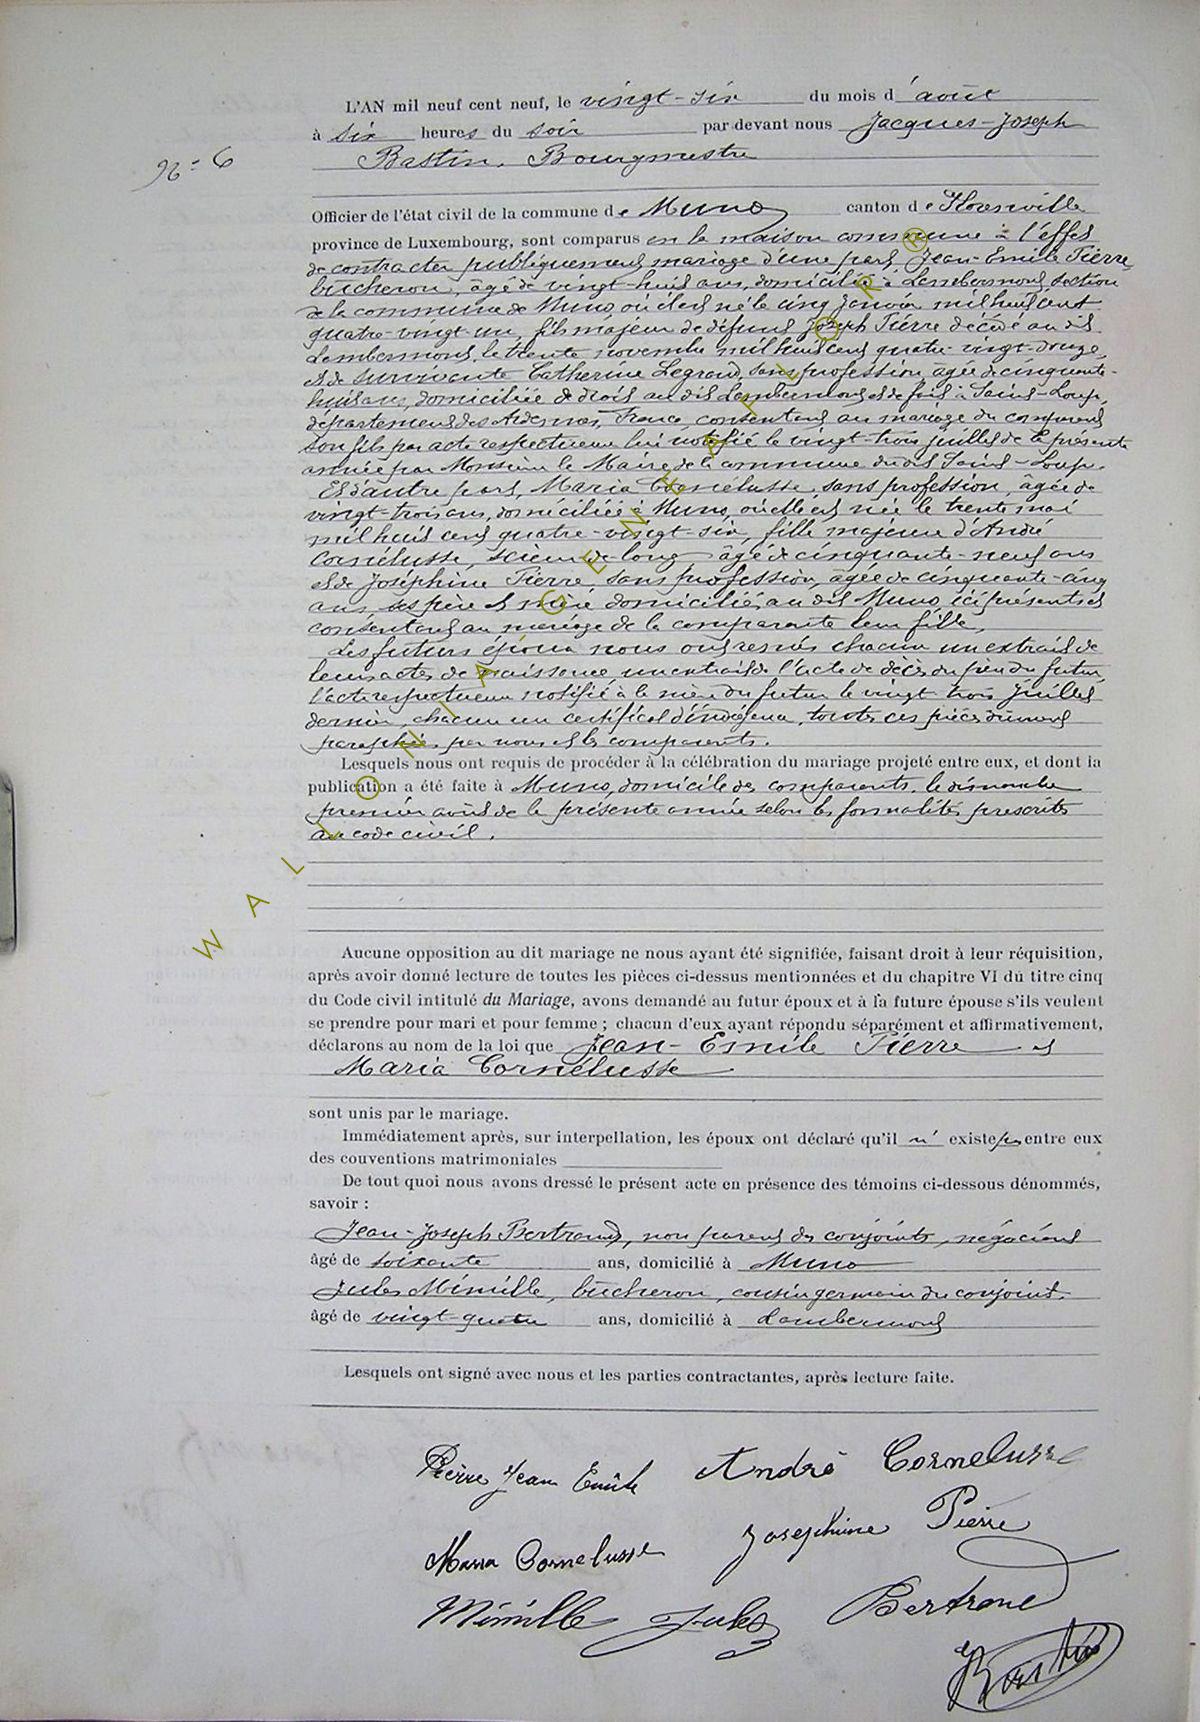 L'AN mil neuf cent neuf, le vingt-six du mois d'août
à six heures du soir par devant nous Jacques-Joseph
N° 6
Bastin, Bourgmestre
Officier de l'état civil de la commune de Muno canton de Florenville
province de Luxembourg, sont comparus en la maison commune à l'effet
de contracter publiquement mariage d'une part, Jean-Emile Pierre,
bûcheron, âgé de vingt-huit ans, domicilié à Lambermont, section
de la commune de Muno, où il est né le cinq janvier mil huit cent
quatre-vingt-un, fils majeur de défunt Joseph Pierre décédé au dit
Lambermont, le trente novembre mil huit cent quatre-vingt-douze,
et de survivante Catherine Legrand, sans profession, âgée de cinquante-
huit ans, domiciliée de droit au dit Lambermont et de fait à Saint-Loup,
département des Ardennes, France, consentant au mariage du comparant
son fils par acte respectueux lui notifié le vingt-trois juillet de la présente
année par Monsieur le Maire de la commune du dit Saint-Loup.
Et d'autre part, Maria Cornélusse, sans profession, âgée de
vingt-trois ans, domiciliée à Muno, où elle est née le trente mai
mil huit cent quatre-vingt-six, fille majeure d'André
Cornélusse, scieur de long âgé de cinquante-neuf ans
et de Joséphine Pierre, sans profession, âgée de cinquante-cinq
ans, ses père et mère domiciliés au dit Muno, ici présents et
consentant au mariage de la comparante leur fille.
Les futurs époux nous ont remis chacun un extrait de
leurs actes de naissance un extrait de l'acte de décès du père du futur,
l'acte respectueux notifié à la mère du futur le vingt-trois juillet
dernier, chacun un certificat d'indigence, toutes ces pièces dûment
paraphées par nous et les comparants.
Lesquels nous ont requis de procéder à la célébration du mariage projeté entre eux, et dont la
publication a été faite à Muno, domicile des comparants, le dimanche
premier août de la présente année selon les formalités prescrites
au code civil.
WALLONIA GENEAFLOR ®
Aucune opposition au dit mariage ne nous ayant été signifiée, faisant droit à leur réquisition,
après avoir donné lecture de toutes les pièces ci-dessus mentionnées et du chapitre VI du titre cinq
du Code civil intitulé du Mariage, avons demandé au futur époux et à la future épouse s'ils veulent
se prendre pour mari et pour femme ; chacun d'eux ayant répondu séparément et affirmativement,
déclarons au nom de la loi que Jean-Emile Pierre et
Maria Cornélusse
sont unis par le mariage.
Immédiatement après, sur interpellation, les époux ont déclaré qu'il n'existe pas entre eux
des conventions matrimoniales
De tout quoi nous avons dressé le présent acte en présence des témoins ci-dessous dénommés,
savoir :
Jean-Joseph Bertrand, non parent des conjoints, négociant
âgé de soixante ans, domicilié à Muno
Jules Mimille, bûcheron, cousin germain du conjoint,
âgé de vingt-quatre ans, domicilié à Lambermont
Lesquels ont signé avec nous et les parties contractantes, après lecture faite.
Pierre Jean Emile André Cornelusse
Maria Cornelusse Josephine Pierre
Mimille Jules Bertrand
Bastin